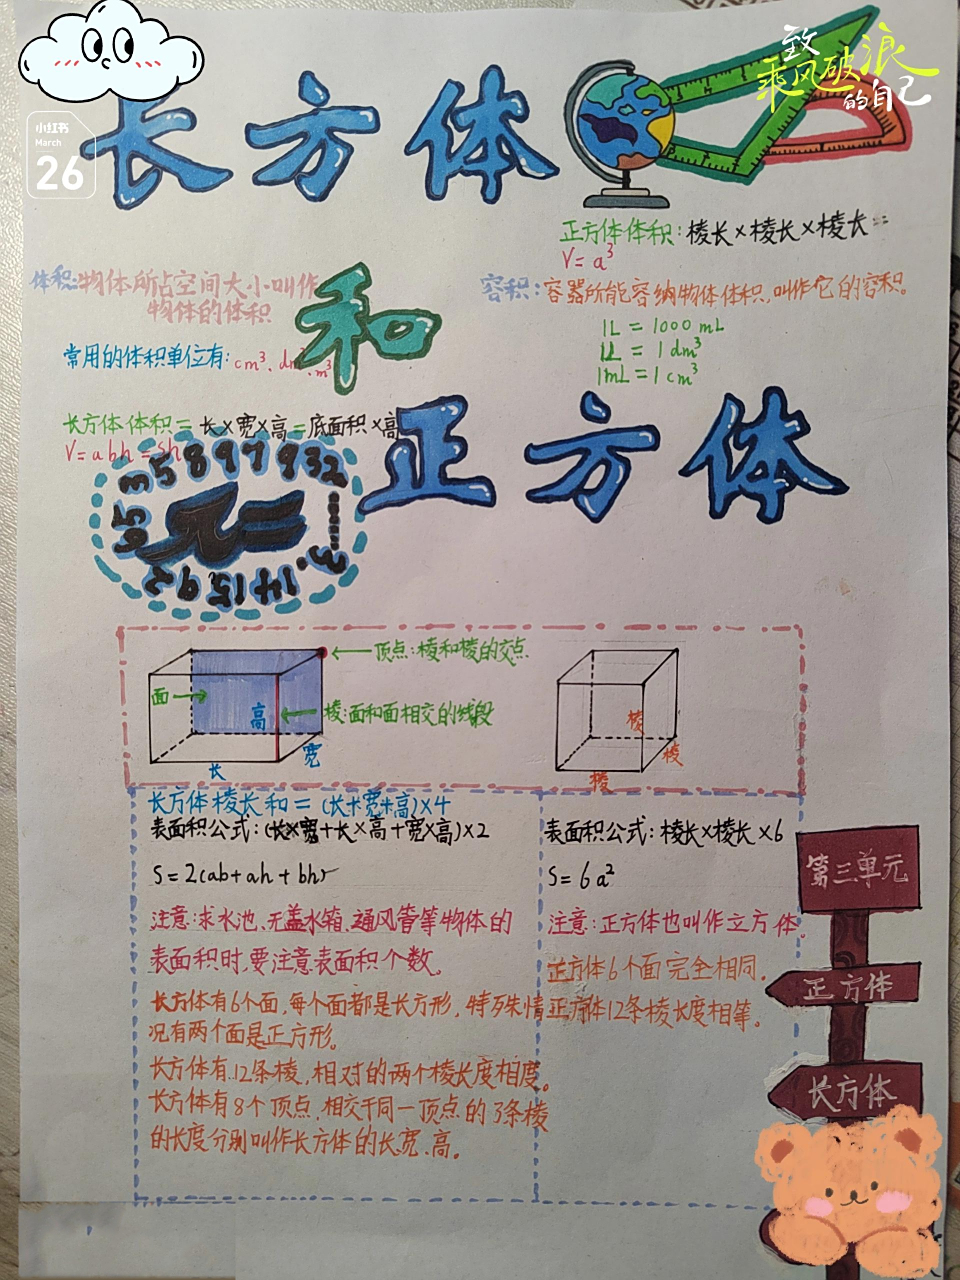 致
乘风破浪
的自己
小红书
March
26
长方体
正方体体积:棱长×棱长×棱长=
V=a³
体积:物体所占空间大小叫作
物体的体积
和
容积:容器所能容纳物体体积,叫作它的容积。
1L=1000mL
1L=1dm³
1mL=1cm³
常用的体积单位有:cm³、dm³、m³
长方体体积=长×宽×高=底面积×高
V=abh=Sh
正方体
π=
顶点:棱和棱的交点
面
高
棱:面和面相交的线段
宽
长
棱
棱
棱
长方体棱长和=(长+宽+高)×4
表面积公式:(长×宽+长×高+宽×高)×2
S=2(ab+ah+bh)
注意:求水池、无盖水箱、通风管等物体的
表面积时,要注意表面积个数。
长方体有6个面,每个面都是长方形,特殊情
况有两个面是正方形。
长方体有12条棱,相对的两个棱长度相度。
长方体有8个顶点,相交于同一顶点的3条棱
的长度分别叫作长方体的长、宽、高。
表面积公式:棱长×棱长×6
S=6a²
注意:正方体也叫作立方体。
正方体6个面完全相同。
正方体12条棱长度相等。
第三单元
正方体
长方体